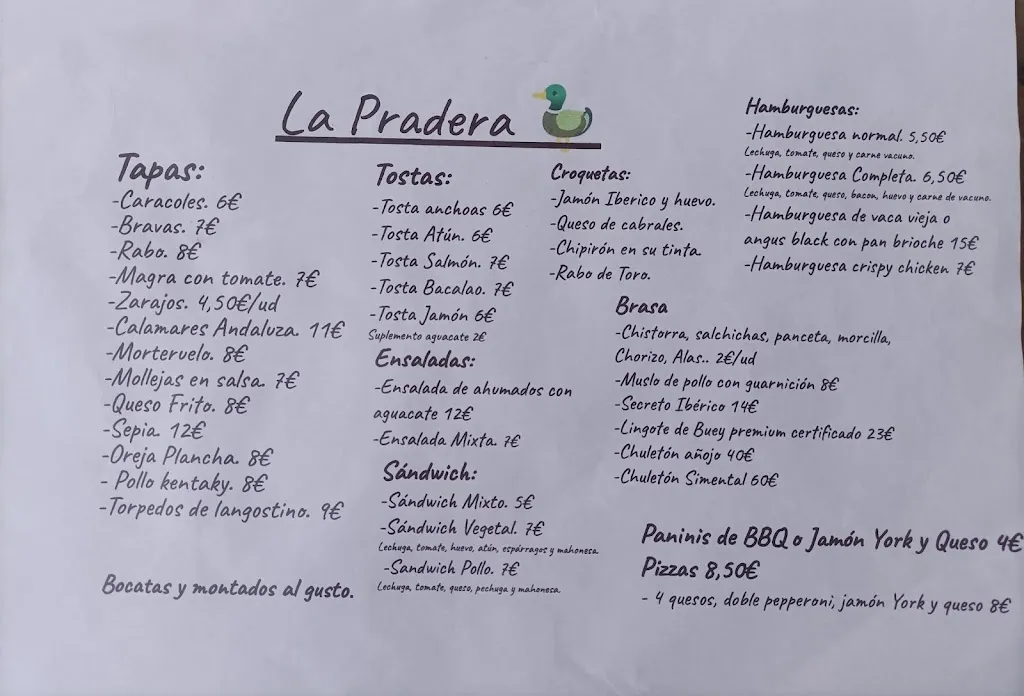 La Pradera
Tapas:
-Caracoles. 6€
-Bravas. 7€
-Rabo. 8€
-Magra con tomate. 7€
-Zarajos. 4,50€/ud
-Calamares Andaluza. 11€
-Morteruelo. 8€
-Mollejas en salsa. 7€
-Queso Frito. 8€
-Sepia. 12€
-Oreja Plancha. 8€
- Pollo kentaky. 8€
-Torpedos de langostino. 9€
Bocatas y montados al gusto.
Tostas:
-Tosta anchoas 6€
-Tosta Atún. 6€
-Tosta Salmón. 7€
-Tosta Bacalao. 7€
-Tosta Jamón 6€
Suplemento aguacate 2€
Ensaladas:
-Ensalada de ahumados con
aguacate 12€
-Ensalada Mixta. 7€
Sándwich:
-Sándwich Mixto. 5€
-Sándwich Vegetal. 7€
Lechuga, tomate, huevo, atún, espárragos y mahonesa.
-Sandwich Pollo. 7€
Lechuga, tomate, queso, pechuga y mahonesa.
Croquetas:
-Jamón Iberico y huevo.
-Queso de cabrales.
-Chipirón en su tinta.
-Rabo de Toro.
Hamburguesas:
-Hamburguesa normal. 5,50€
Lechuga, tomate, queso y carne vacuno.
-Hamburguesa Completa. 6,50€
Lechuga, tomate, queso, bacon, huevo y carne de vacuno.
-Hamburguesa de vaca vieja o
angus black con pan brioche 15€
-Hamburguesa crispy chicken 7€
Brasa
-Chistorra, salchichas, panceta, morcilla,
Chorizo, Alas.. 2€/ud
-Muslo de pollo con guarnición 8€
-Secreto Ibérico 14€
-Lingote de Buey premium certificado 23€
-Chuletón añojo 40€
-Chuletón Simental 60€
Paninis de BBQ o Jamón York y Queso 4€
Pizzas 8,50€
- 4 quesos, doble pepperoni, jamón York y queso 8€